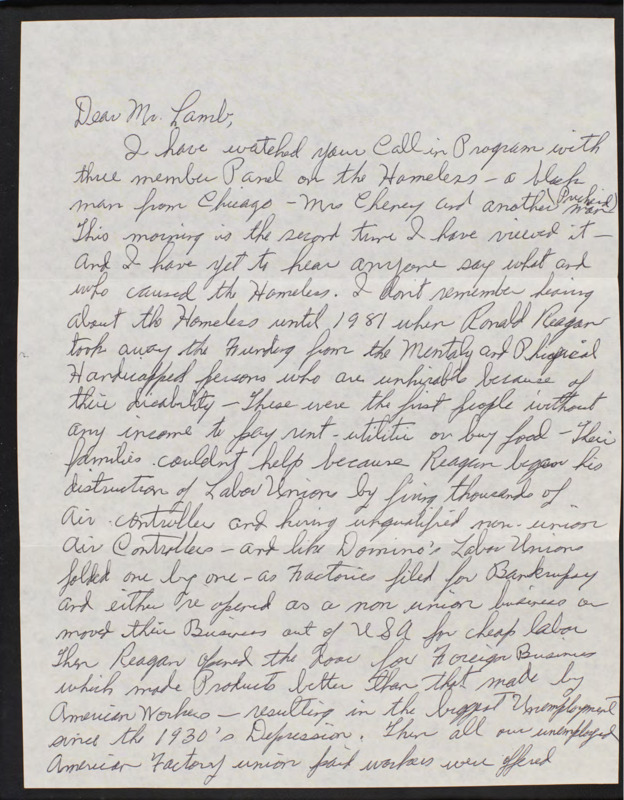 Dear Mr. Lamb,
I have watched your Call in Program with
three member Panel on the Homeless - a black
man from Chicago - Mrs Cheney and another man
This morning is the second time I have viewed it -
and I have yet to hear anyone say what and
who caused the Homeless. I don't remember hearing
about the Homeless until 1981 when Ronald Reagan
took away the Funding from the Mentaly and Phsical
Handicapped persons who are unhirable because of
their disability - These were the first people without
any income to pay rent - utilitie or buy food - Their
families couldn't help because Reagan began his
distruction of Labor Unions by firing thousands of
Air controlles and hiring unqualified non-union
Air Controllers - and like Domino's Labor Unions
folded one by one - as Factories filed for Bankrupsy
and either re opened as a non union business or
moved their Business out of USA for cheap labor
Then Reagan opened the Door for Foreign Business
which made Products better than that made by
American Workers - resulting in the biggest Unemployment
since the 1930's Depression. Then all our unemployed
American Factory union paid workers were offered